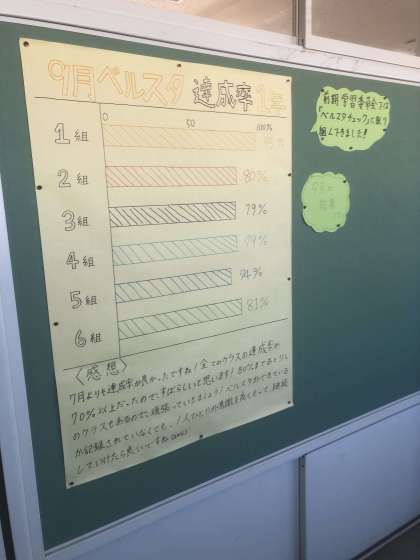 9月ベルスタ達成率1年
0 50 100%
1組
2組 80%
3組 79%
4組 79%
5組 74%
6組 81%
〈感想〉
7月よりも達成率が良かったですね！全てのクラスの達成率が
70%以上だったので、すばらしいと思います！80%まであと少し
のクラスもあるので、頑張っていきましょう！ベルスタができている
か記録されていなくても、1人ひとりが意識を高くもって、継続
していけたら良いですね
前期学習委員会では
「ベルスタチェック」に取り
組んできました！
9月の
結果